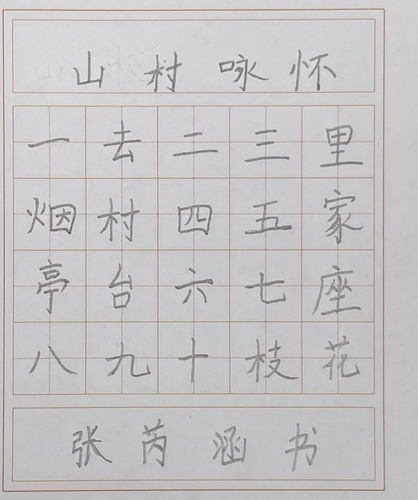 山村咏怀
一去二三里
烟村四五家
亭台六七座
八九十枝花
张芮涵书